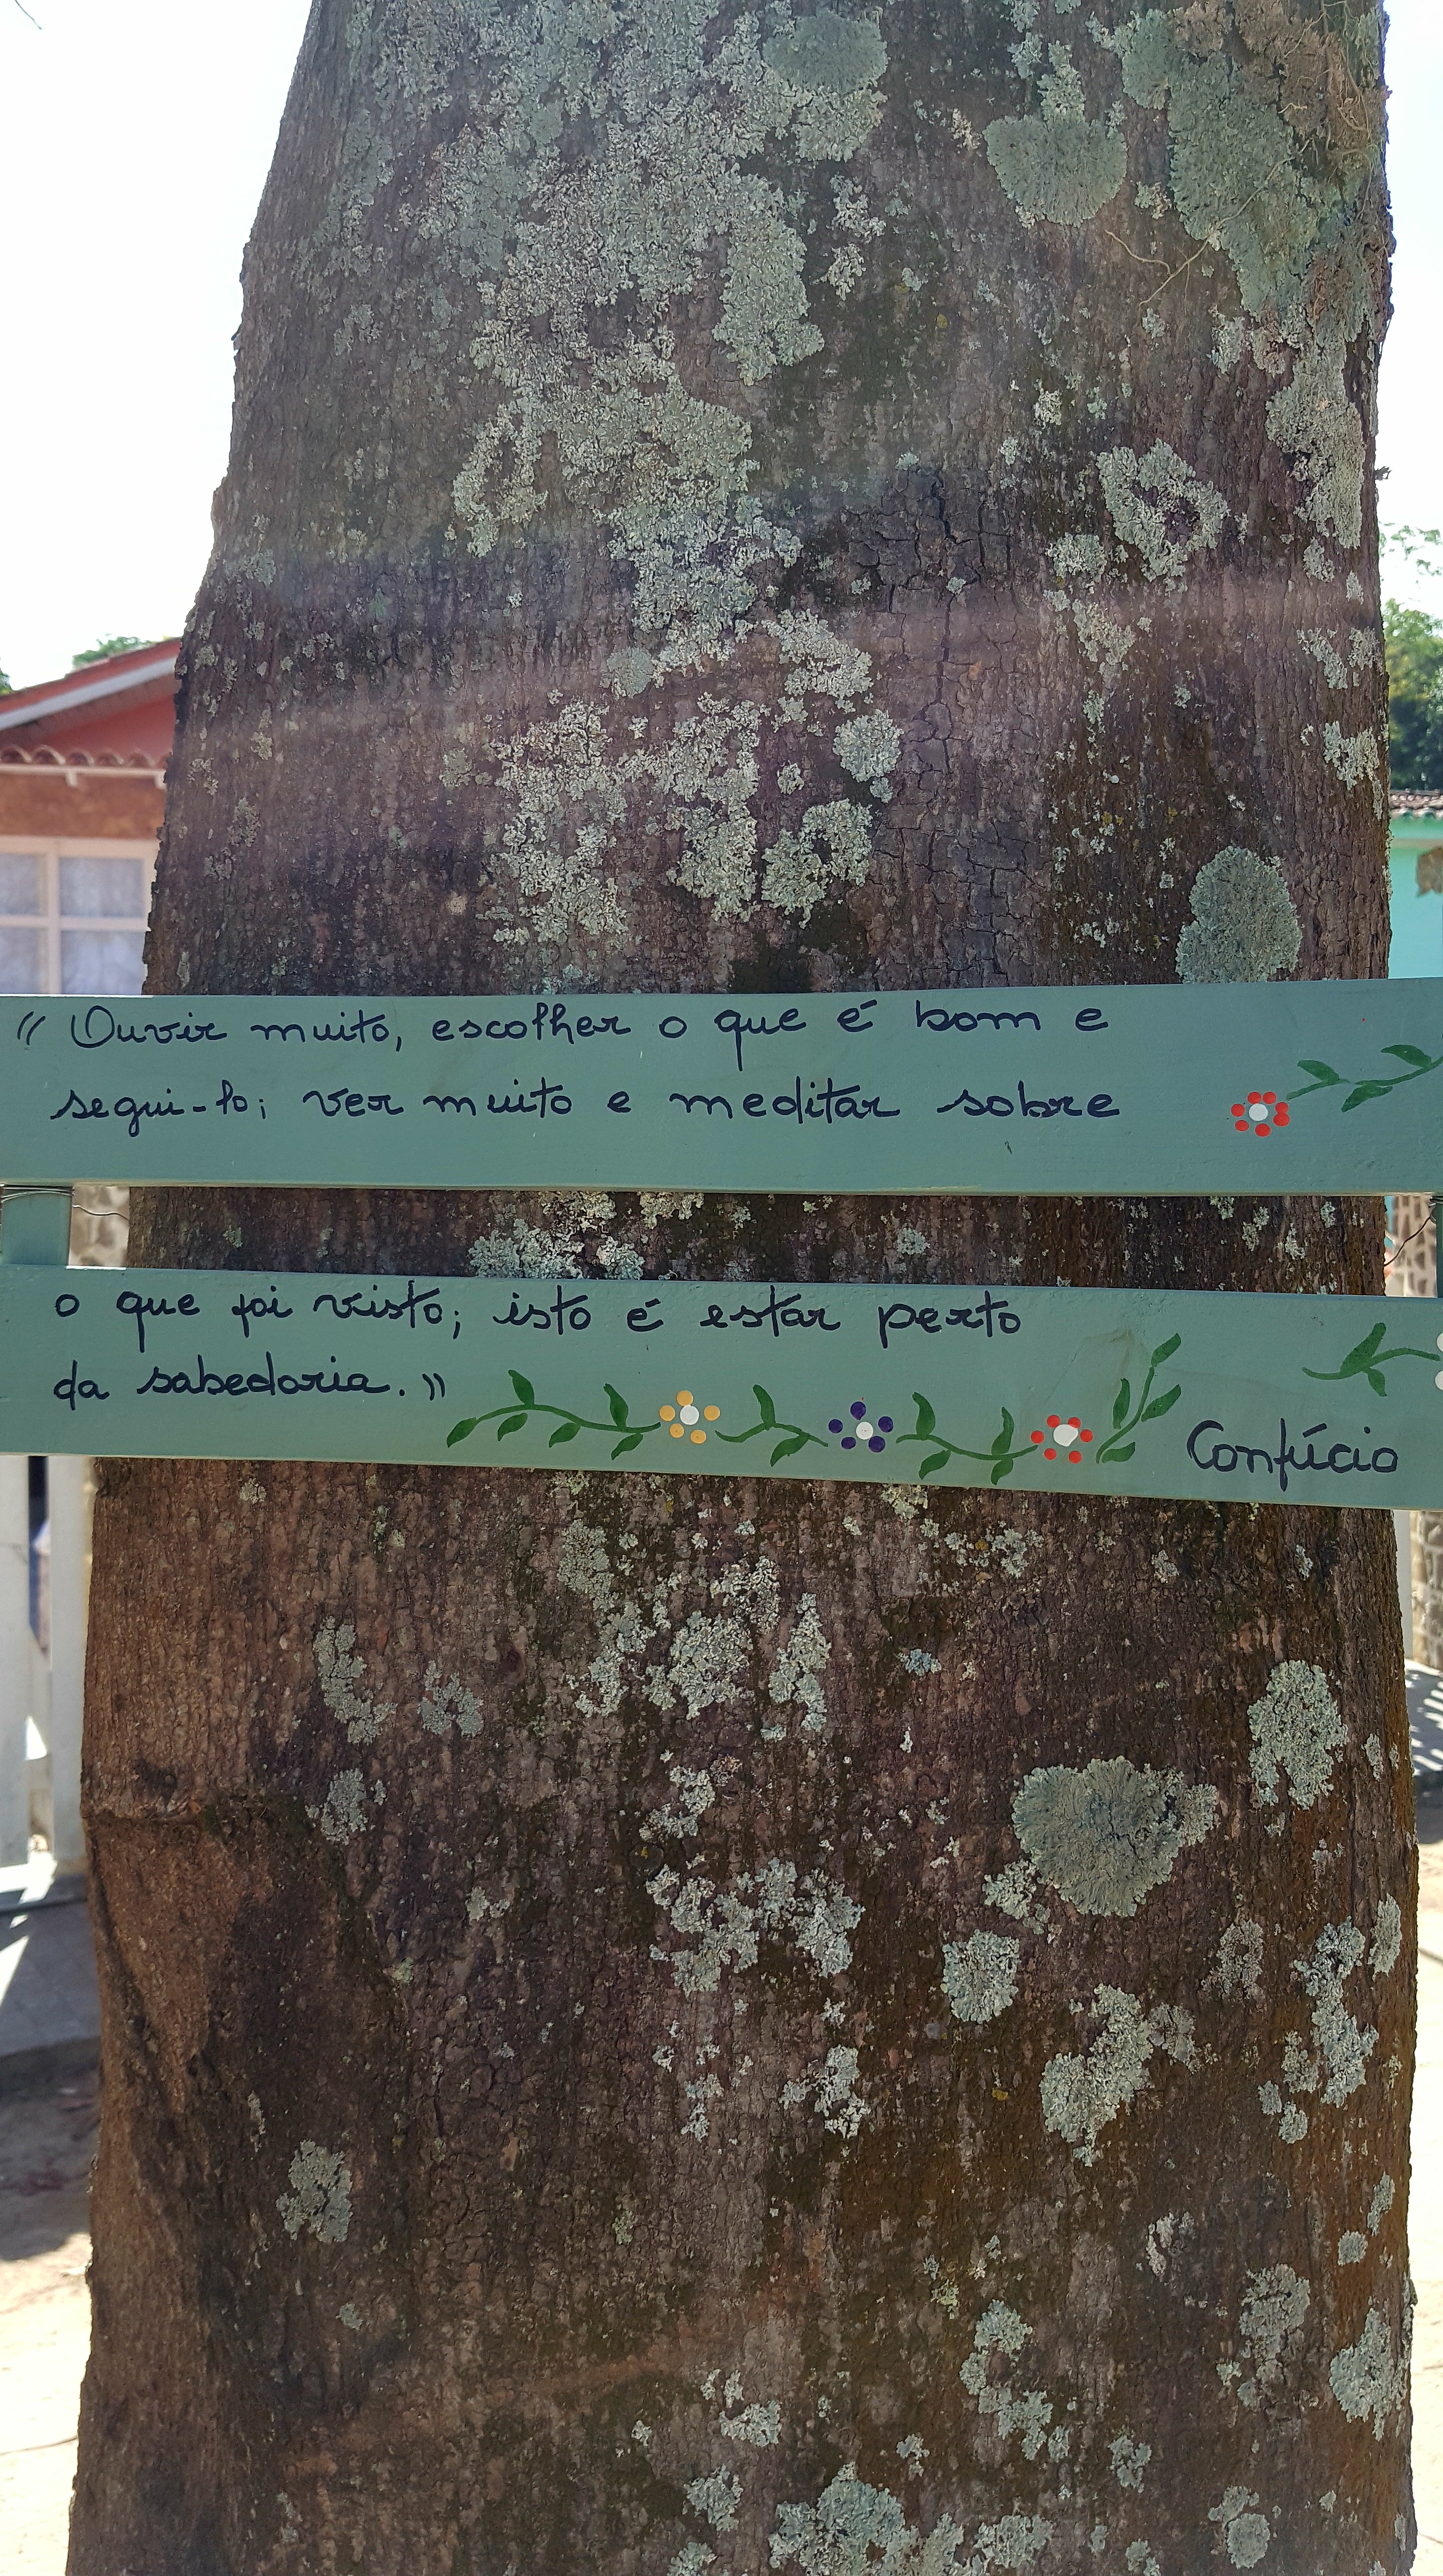 " Ouvir muito, escolher o que é bom e
segui-lo; ver muito e meditar sobre
o que foi visto; isto é estar perto
da sabedoria."
Confúcio